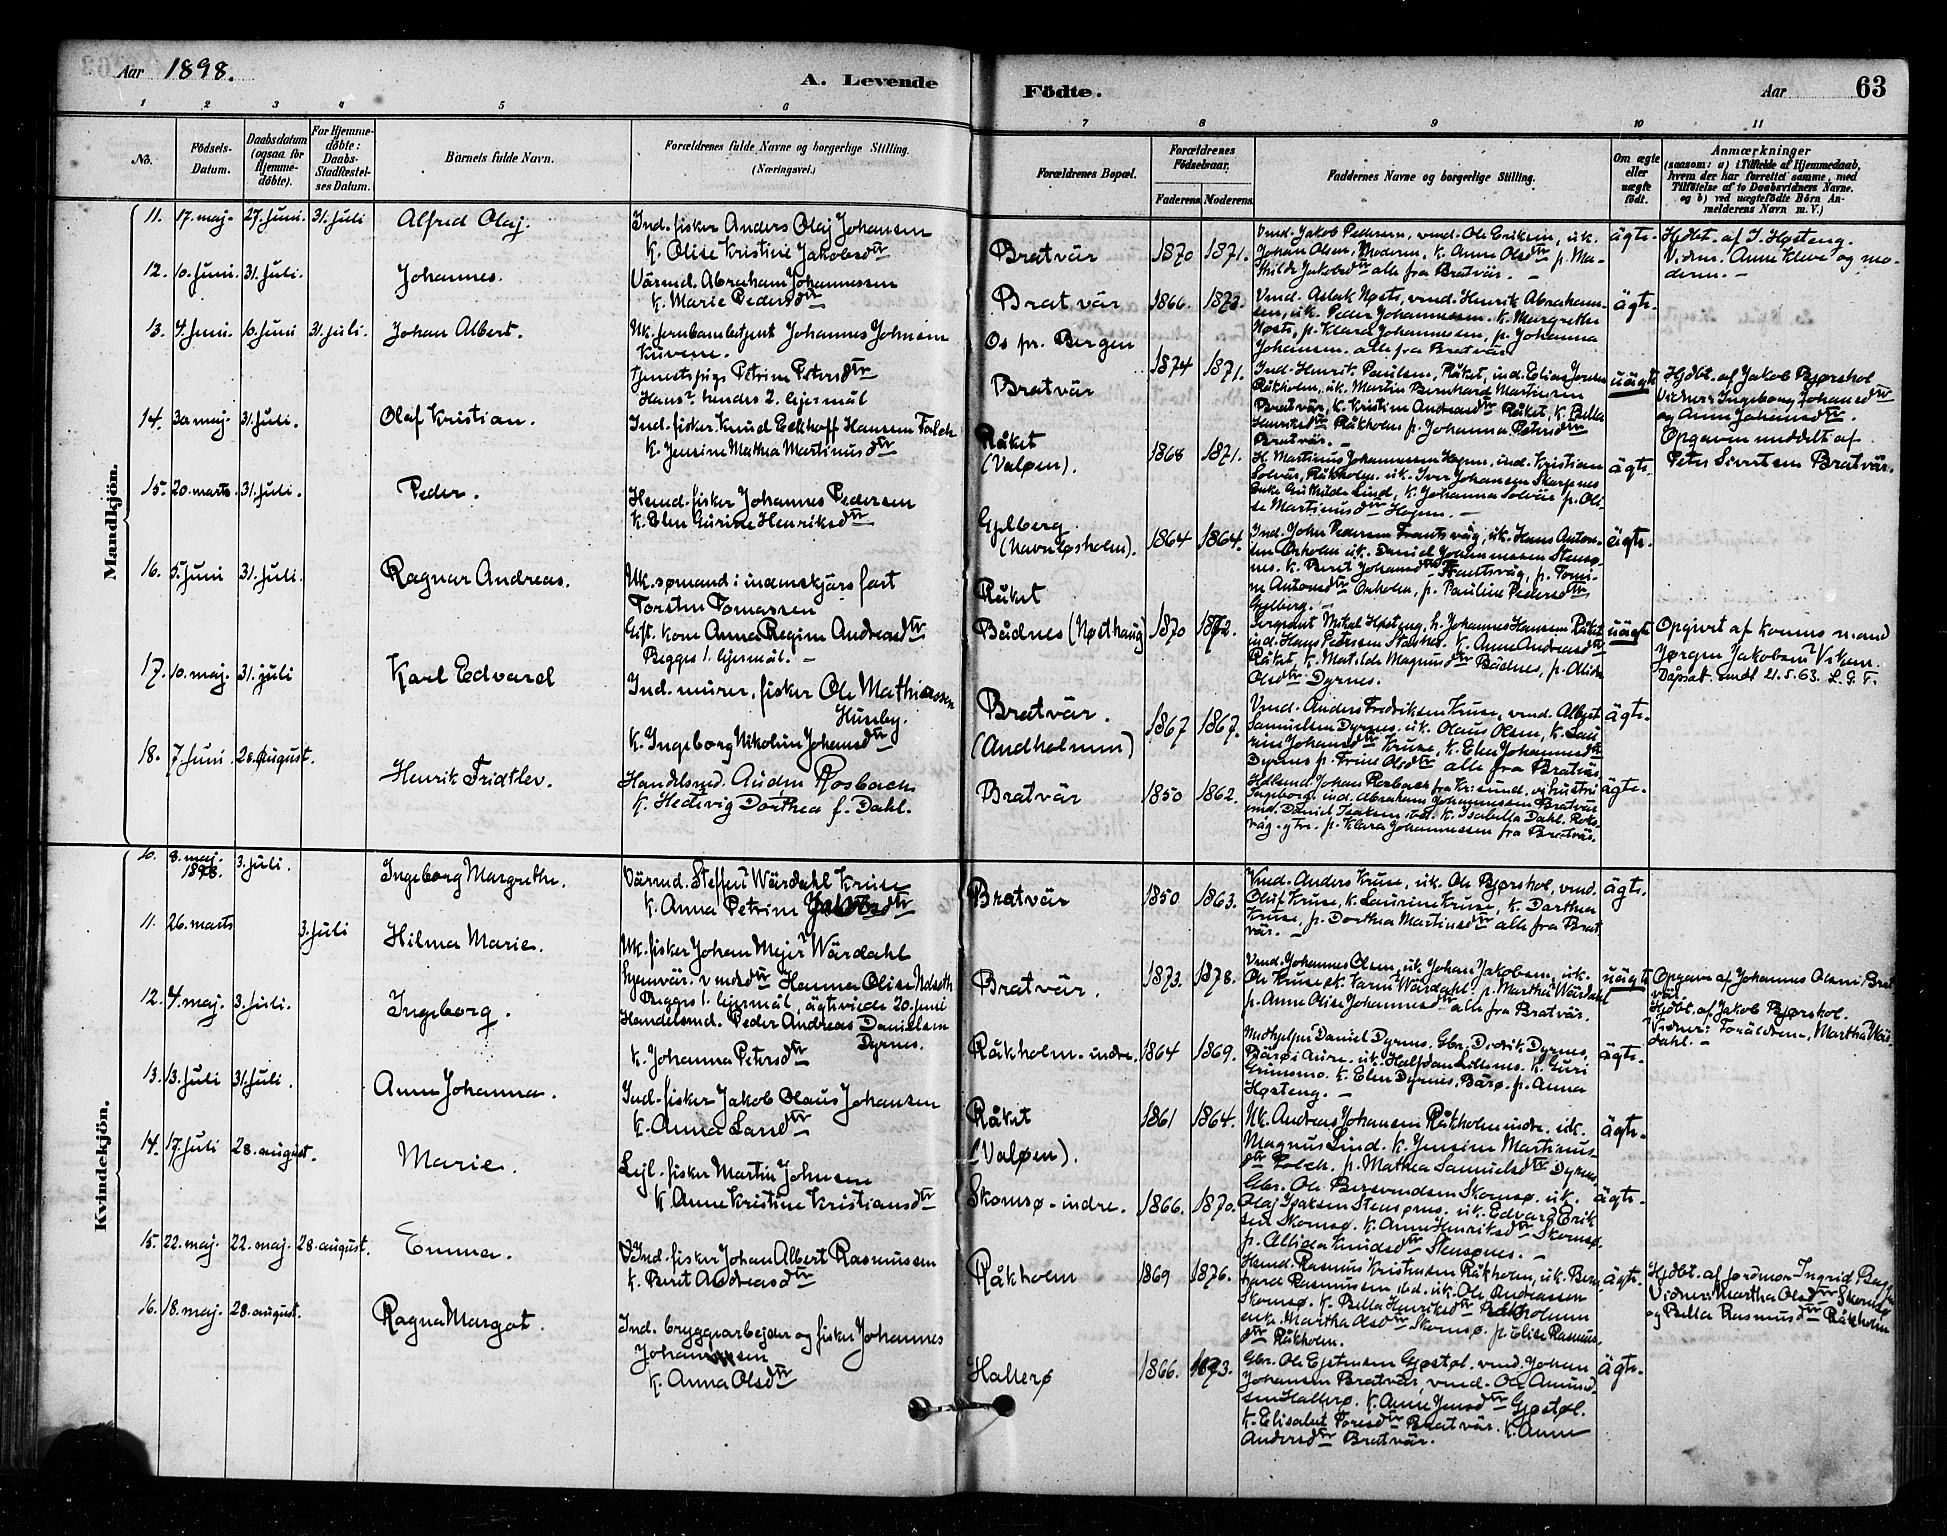 Aar 1898.
A. Levende
Födte.
Aar
63
1 2 3 4 5 6 7 8 9 10 11
No.
Födsels-
Datum.
Daabsdatum
(ogsaa for
Hjemme-
döbte).
For Hjemme-
döbte:
Daabs-
Stadfæstel-
ses Datum.
Barnets fulde Navn.
Forældrenes fulde Navne og borgerlige Stilling.
(Næringsvei.)
Forældrenes Bopæl.
Forældrenes
Födselsaar.
Faderens. Moderens.
Faddernes Navne og borgerlige Stilling.
Om ægte
eller
uægte
födt.
Anmærkninger
(saasom: a) i Tilfælde af Hjemmedaab,
hvem der har forrettet samme, med
Tilföielse af to Daabsvidners Navne.
og b) ved uægtefödte Börn An-
melderens Navn m. V.)
Mandkjön.
11. 17. maj. 27. juni. 31. juli
Alfred Olaj.
Ind. fisker Anders Olaj Johansen
K. Olise Kristine Jakobsdtr
Bratvär 1870 1871.
Vmd. Jakob Pedersen, vmd. Ole Eriksen, uk.
Johan Olsen, Moderen, K. Anne Olsdtr p. Ma-
thilde Jakobsdtr alle fra Bratvär. –
ägte.
Hjdbt. af J. Høsteng.
Vidner: Anne Kleve og mo-
deren. –
12. 10. juni. 31. juli.
Johannes.
Värmd. Abraham Johannessen
K. Marie Pedersdtr
Bratvär 1866. 1872.
Vmd. Aslak Nøsts, vmd. Henrik Abraham-
sen, uk. Peder Johannessen. K. Margrethe
Nøsts, p. Klara Johannessen, p. Johanna
Johansen. alle fra Bratvär
ägte.
13. 4. juni. 10. juni 31. juli.
Johan Albert.
Uk. jernbanebetjent Johannes Johnsen
Kuvene.
tjenestepige Petrine Petersdtr
Hans? hendes 2. lejermål
Os pr. Bergen
Bratvär
1874 1871.
Ind. Henrik Paulsen, Råket, ind. Elias Jensen
Råkholm, uk. Martin Bernhard Martinsen
Bratvär, K. Kristine Andreasdtr Råket, K. Bella
Henriksdtr Råkholm p. Johanna Petersdtr
Bratvär. –
uägte
Hjdbt. af Jakob Bjørshol
Vidner: Ingeborg Johansdtr
og Anne Johansdtr.
Opgaven meddelt af
Peter Sivertsen Bratvär.
14. 30. maj. 31. juli.
Olaf Kristian.
Ind. fisker. Knud Eckhoff Hansen Folch
K. Jensine Mathea Martinusdtr
Råket
(Valøen).
1868 1871.
H. Martinus Johannessen Hogen, ind. Kristian
Solvär, Råkholm. uk. Iver Johansen Skarpnes
Enke Gurhilde Lind, K. Johanna Solvär p. Oli-
se Martinusdtr Hogen. –
ägte.
15. 20. marts. 31. juli.
Peder.
Hemd. fisker Johannes Pedersen
K. Elen Gurine Henriksdtr
Gylberg
(Navnløsholm).
1864 1864.
Ind. John Pedersen Frantsvåg, uk. Hans Anton-
sen Orholm uk. Daniel Johannessen Stensø-
nes. K. Berit Johansdtr Frantsvåg, p. Tomi-
ne Antonsdtr Orholm, p. Pauline Pedersdtr
Gylberg. –
ägte.
16. 5. juni 31. juli.
Ragnar Andreas.
Uk. sømand i indenskjärs fart
Torsten Tomassen
Gift. kone Anna Regine Andreasdtr
Begges 1. lejermål. –
Råket
Bådnes (Nøsthaug)
1870 1872.
Sergeant Mikal Høsteng, h. Johannes Hansen Råket
ind. Hans Petersen Staknes. K. Anne Andreasdtr
Råket, K. Matilde Magnusdtr Bådnes, p. Alida
Olsdtr Dyrnes.
uägte
Opgivet af konens mand
Jørgen Jakobsen Viken.
Dåpsat. sendt 21.5.63. L.G.T.
17. 10. maj. 31. juli
Karl Edvard
Ind. murer, fisker Ole Mathiassen
Huseby.
K. Ingeborg Nikoline Johansdtr
Bratvär.
(Andholmen)
1867 1867.
Vmd. Anders Fredriksen Kruse, vmd. Albert
Samuelsen Dyrnes, uk. Olaus Olsen, K. Lau-
rine Johansdtr Kruse, K. Elen Johannesdtr
Dyrnes p. Trine Olsdtr alle fra Bratvär.
ägte.
18. 7. juni 28. august.
Henrik Fridtlev.
Handelsmd. Audin Rosbach
K. Hedevig Dorthea f. Dahl.
Bratvär 1850 1862.
Hdlsmd. Johan Rosbach fra Kr.sund, og hustru
Ingeborg, ind. Abraham Johannessen Bratvär
vmd. Daniel Isaksen ibd. K. Isabella Dahl. Roks-
våg. p. Klara Johannessen fra Bratvär.
ägte.
Kvindekjön.
10. 8. maj. 1898. 3. juli.
Ingeborg Margrethe.
Värmd. Steffen Wärdahl Kruse
K. Anna Petrine Jakobsdtr
Bratvär 1850 1863.
Vmd. Anders Kruse, uk. Ole Bjørshol, vmd.
Oluf Kruse, K. Laurine Kruse, K. Darthea
Kruse, p. Dorthea Martinsdtr alle fra Brat
vär. –
ägte.
11. 26. marts 3. juli
Hilma Marie.
Uk. fisker Johan Mejer Wärdahl
hjemvär. vmdsdtr Hanna Olise
Begges 1. lejermål, ägteviede 20. juni
Bratvär. 1873. 1878.
Vmd. Johannes Olsen, uk. Johan Jakobsen, uk.
Ole Kruse, K. Karen Wärdahl. p. Martha Wärdahl
p. Anna Olise Johannesdtr alle fra Bratvär.
uägte
Opgave af Johannes Olsen Brat
vär.
Hjdbt. af Jakob Bjørshol.
Vidner: Foräldrene, Martha Wär-
dahl. –
12. 4. maj. 3. juli.
Ingeborg.
Handelsmd. Peder Andreas Danielsen
Dyrnes.
K. Johanna Petersdtr
Råkholm – indre. 1864 1869.
Medhjelper Daniel Dyrnes. Gbr. Didrik Dyrnes,
Bärø i Aure. uk. Halfdan Lillenes. K. Guri
Grimsmo. K. Elen Dyrnes, Bärø. p. Anna
Høsteng. –
ägte.
13. 13. juli 31. juli.
Anne Johanna.
Ind. fisker Jakob Olaus Johansen
K. Anna Larsdtr
Råket
(Valøen).
1861 1864.
Uk. Andreas Johansen Råkholm indre. uk.
Magnus Lind. K. Jensine Martinus-
dtr Folch. p. Mathea Samuelsdtr Dyrnes
ägte.
14. 17. juli 28. august.
Marie.
Lejl. fisker Martin Johnsen
K. Anne Kristine Kristiansdtr
Skomsø – indre. 1866. 1870.
Gbr. Ole Bersvendsen Skomsø. uk.
Olaj Isaksen Stensønes. uk. Edvard Erik
sen Skomsø. K. Anne Henriksdtr Skomsø.
p. Allida Knudsdtr Stensønes. –
ägte.
15. 22. maj. 22. maj. 28. august.
Emma.
Ind. fisker Johan Albert Rasmussen
K. Berit Andreasdtr
Råkholm 1869 1876.
Hemd. Rasmus Kristensen Råkholm, uk. Bern
hard Rasmussen ibd. uk. Ole Andreassen
Skomsø. K. Bella Henriksdtr Råkholmen
enke Martha Olsdtr Skomsø. p. Elise Rasmus-
dtr Råkholm.
ägte.
Hjdbt. af jordmor Ingrid
Vidner: Martha Olsdtr Skomsø
og Bella Rasmusdtr Råkholm
16. 18. maj. 28. august.
Ragna Margot.
Ind. bryggearbejder og fisker Johannes
Johannessen
K. Anna Olsdtr
Hallerø 1866. 1873.
Gbr. Ole Ejstensen Gjøstøl. vmd. Johan
Johansen Bratvär, vmd. Ole Amund-
sen Hallerø. K. Anne Jensdtr Gjøstøl.
K. Elisabet Toresdtr Bratvär. K. Anne
Andersdtr Bratvär.
ägte.